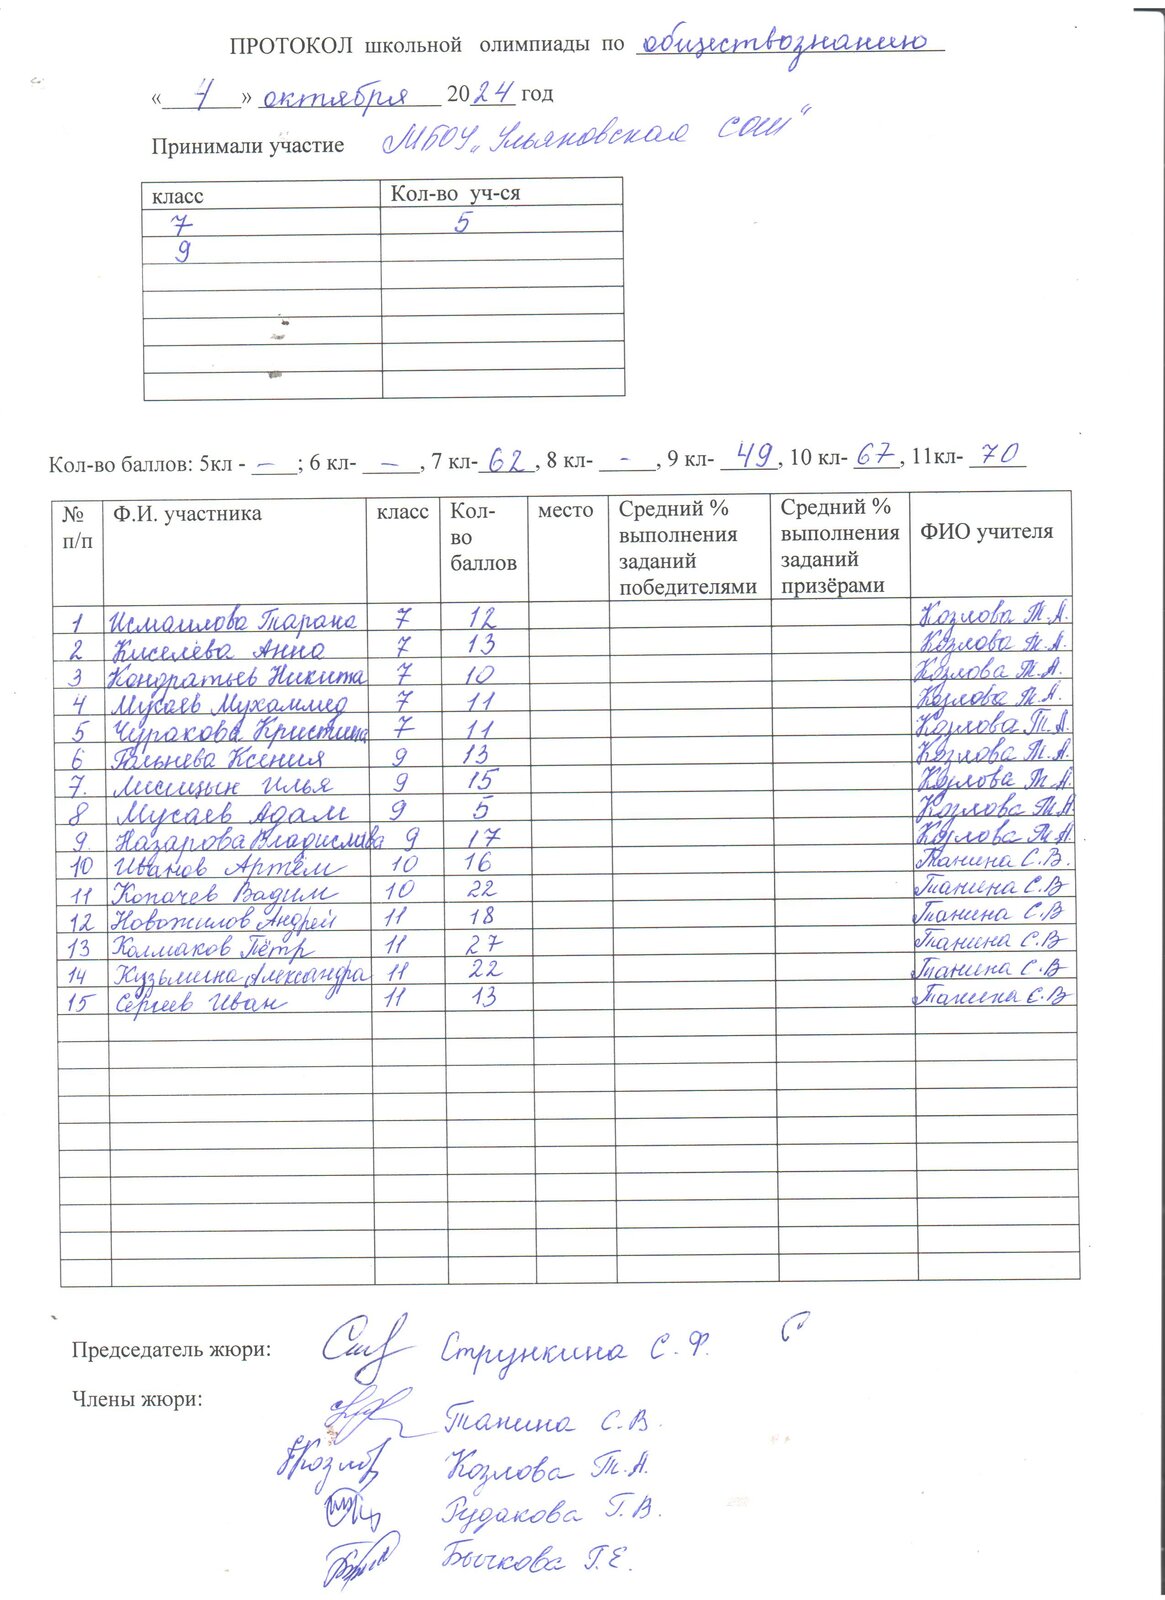 ПРОТОКОЛ школьной олимпиады по обществознанию
«7» октября 2024 год
Принимали участие МБОУ „Ульяновская СОШ“
класс Кол-во уч-ся
7 5
9
Кол-во баллов: 5кл - –; 6 кл- –, 7 кл- 62, 8 кл- -, 9 кл- 49, 10 кл- 67, 11кл- 70
№ п/п Ф.И. участника класс Кол-во баллов место Средний % выполнения заданий победителями Средний % выполнения заданий призёрами ФИО учителя
1 Исмаилова Тарана 7 12 Козлова Т.А.
2 Киселёва Анна 7 13 Козлова Т.А.
3 Кондратьев Никита 7 10 Козлова Т.А.
4 Мусаев Мухаммед 7 11 Козлова Т.А.
5 Чуракова Кристина 7 11 Козлова Т.А.
6 Ксения 9 13 Козлова Т.А.
7. Лисицын Илья 9 15 Козлова Т.А.
8 Мусаев Адам 9 5 Козлова Т.А.
9. Назарова Владислава 9 17 Козлова Т.А.
10 Иванов Артём 10 16 Танина С.В.
11 Копачев Вадим 10 22 Танина С.В
12 Новожилов Андрей 11 18 Танина С.В
13 Колмаков Пётр 11 27 Танина С.В
14 Кузьмина Александра 11 22 Танина С.В
15 Сергеев Иван 11 13 Танина С.В
Председатель жюри: Стрункина С.Ф.
Члены жюри:
Танина С.В.
Козлова Т.А.
Рудакова Г.В.
Бычкова Г.Е.